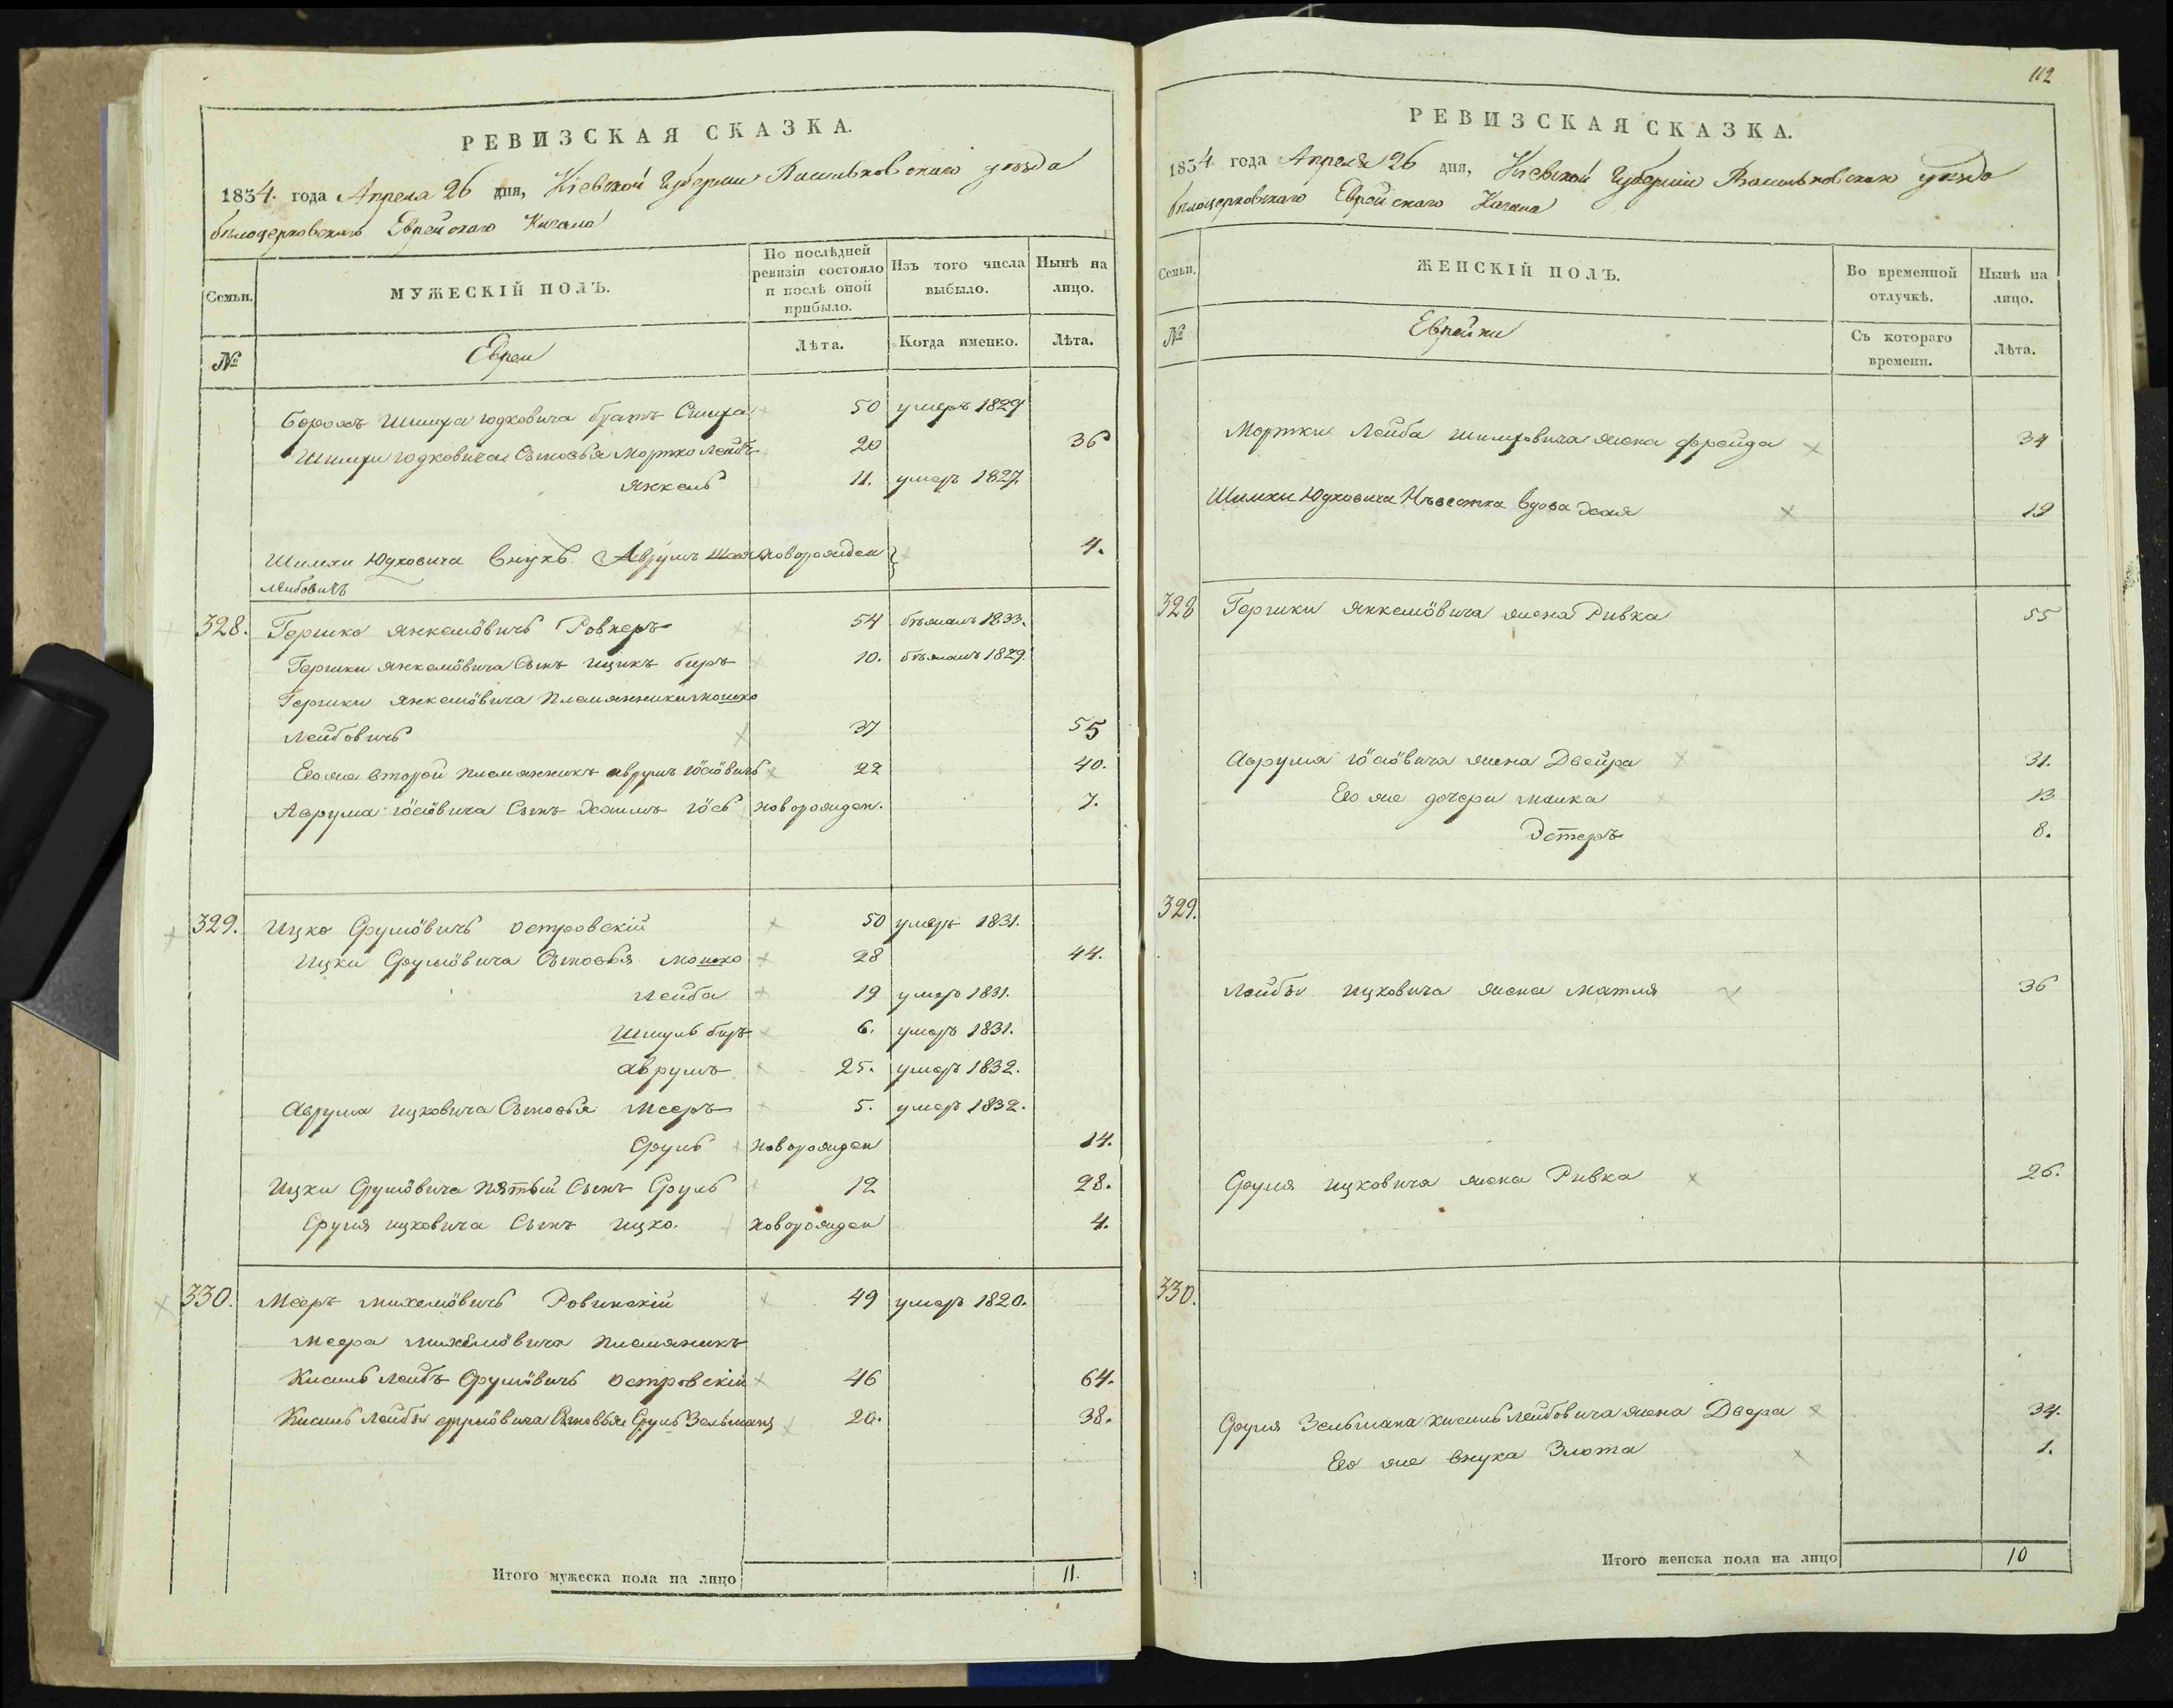 РЕВИЗСКАЯ СКАЗКА.
1834. года Апреля 26 дня, Кіевской Губерніи Васильковскаго уѣзда
бѣлоцерковскаго Еврейскаго Кагала
Семьи.
МУЖЕСКІЙ ПОЛЪ.
По послѣдней ревизіи состояло и послѣ оной прибыло.
Изъ того числа выбыло.
Нынѣ на лицо.
№
Евреи
Лѣта.
Когда именно.
Лѣта.
Шимха Юдковича братъ 50 умеръ 1829
Шимхи Юдковича Сыновья Мортко Лейбъ 20 36
Янкель 11. умеръ 1827.
Шимхи Юдковича внукъ Аврумъ новорожден 4.
Лейбовичъ
328. Гершко Янкелiовичъ Ровнеръ 54 бѣжалъ 1833.
Гершки Янкелiовича Сынъ Ицикъ беръ 10. бѣжалъ 1829.
Гершки Янкелiовича племянники мошко
Лейбовичъ 37 55
Его же второй племянникъ аврумъ iосiовичъ 22 40.
Аврума iосiовича Сынъ Хаимъ iось новорожден. 7.
329. Ицко Срулiовичъ островскій 50 умеръ 1831.
Ицки Срулiовича Сыновья мошко 28 44.
Лейба 19 умеръ 1831.
Шмуль беръ 6. умеръ 1831.
аврумъ 25. умеръ 1832.
Аврума ицковича Сыновья Мееръ 5. умеръ 1832.
Сруль новорожден 14.
Ицки Срулiовича пятый Сынъ Сруль 12 28.
Сруля ицковича Сынъ ицко. новорожден 4.
330. Мееръ михелiовичъ Ровинскій 49 умеръ 1820.
Меера михелiовича племяникъ
Кисиль Лейбъ Срулiовичъ островскій 46 64.
Кисиль Лейбы срулiовича Сыновья Сруль Зельманъ 20. 38.
Итого мужеска пола на лицо 11.
112
РЕВИЗСКАЯ СКАЗКА.
1834 года Апреля 26 дня, Кіевской Губерніи Васильковскаго уѣзда
бѣлоцерковскаго Еврейскаго Кагала
Семьи.
ЖЕНСКІЙ ПОЛЪ.
Во временной отлучкѣ.
Нынѣ на лицо.
№
Еврейки
Съ котораго времени.
Лѣта.
Мортки Лейба шимховича жена фрейда 34
Шимхи Юдковича Нѣвестка вдова Хая 19
328 Гершки Янкелiовича жена Ривка 55
Аврума iосiовича жена Двейра 31.
Его же дочери малка 13
Эстеръ 8.
329.
Лейбы ицковича жена матля 36
Сруля ицковича жена Ривка 26.
330.
Сруля Зельмана кисиль Лейбовича жена Двера 34.
Его же внука Злота 1.
Итого женска пола на лицо 10